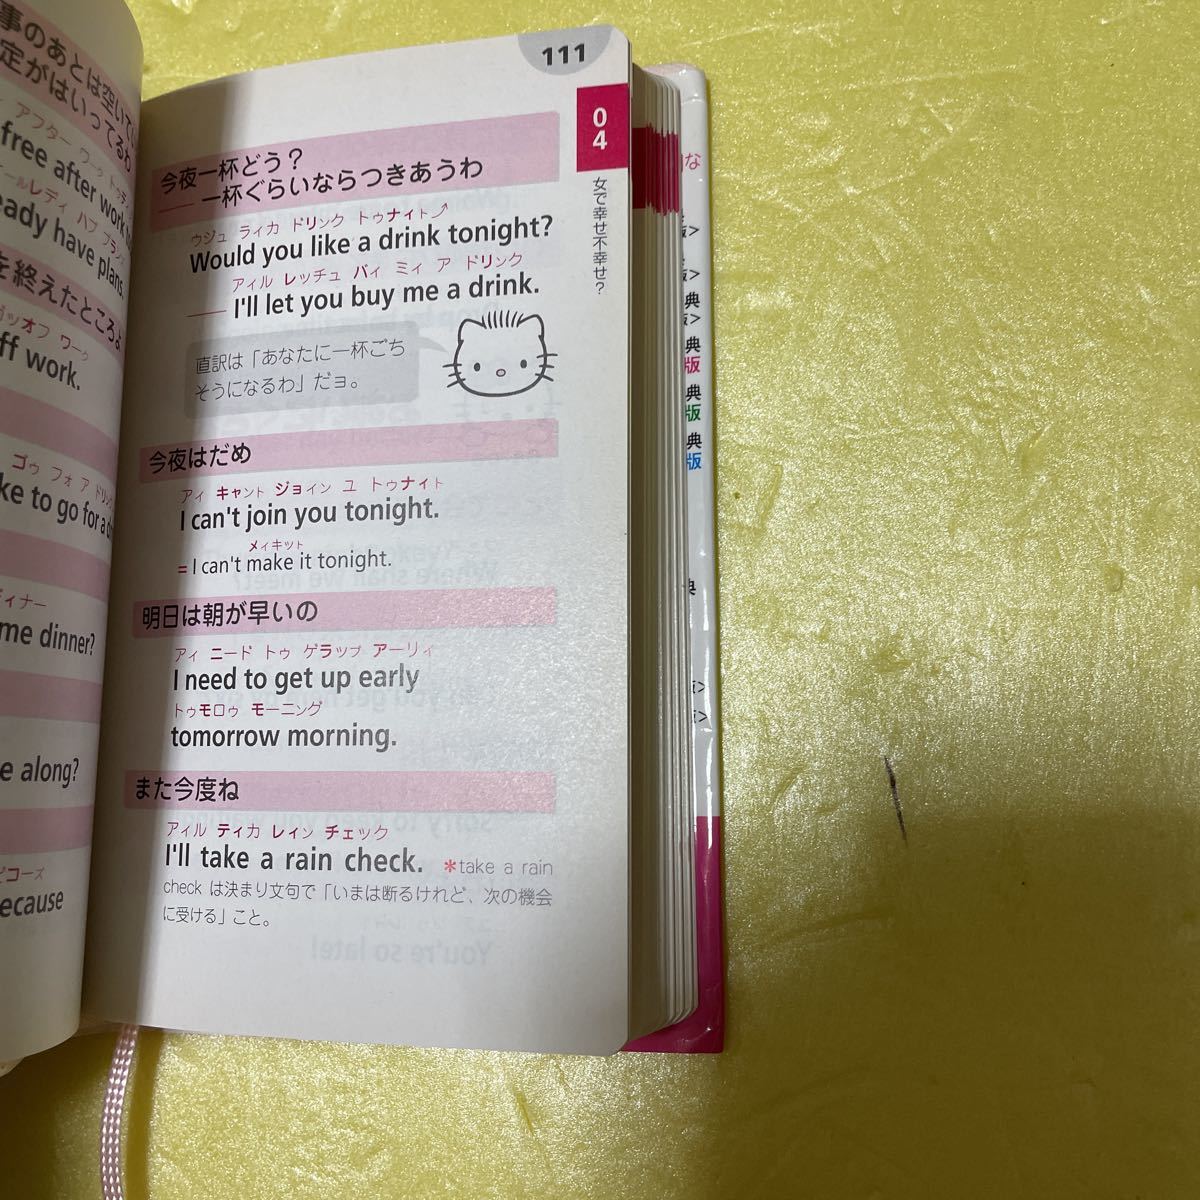 事のあとは空いてい
定がはいってるわ
アフター ウッ
free after work
ールレディ ハブ プランズ
eady have plans.
を終えたところよ
ゲッオフ ワーク
ff work.
ゴゥ フォ ア ドリンク
ke to go for a
ディナー
me dinner?
e along?
ビコーズ
ecause
111
04
女で幸せ不幸せ?
今夜一杯どう?
――一杯ぐらいならつきあうわ
ウジュ ライカ ドリンク トゥナイト⤴
Would you like a drink tonight?
アィル レッチュ バィ ミィ ア ドリンク
――I'll let you buy me a drink.
直訳は「あなたに一杯ごち
そうになるわ」だョ。
今夜はだめ
アィ キャント ジョイン ユ トゥナイト
I can't join you tonight.
メィキット
= I can't make it tonight.
明日は朝が早いの
アィ ニード トゥ ゲラップ アーリィ
I need to get up early
トゥモロゥ モーニング
tomorrow morning.
また今度ね
アィル ティカ レィン チェック
I'll take a rain check. *take a rain
check は決まり文句で「いまは断るけれど、次の機会
に受ける」こと。
な
版>
版>
典
版>
典
版
典
版
典
版
典
版>
>